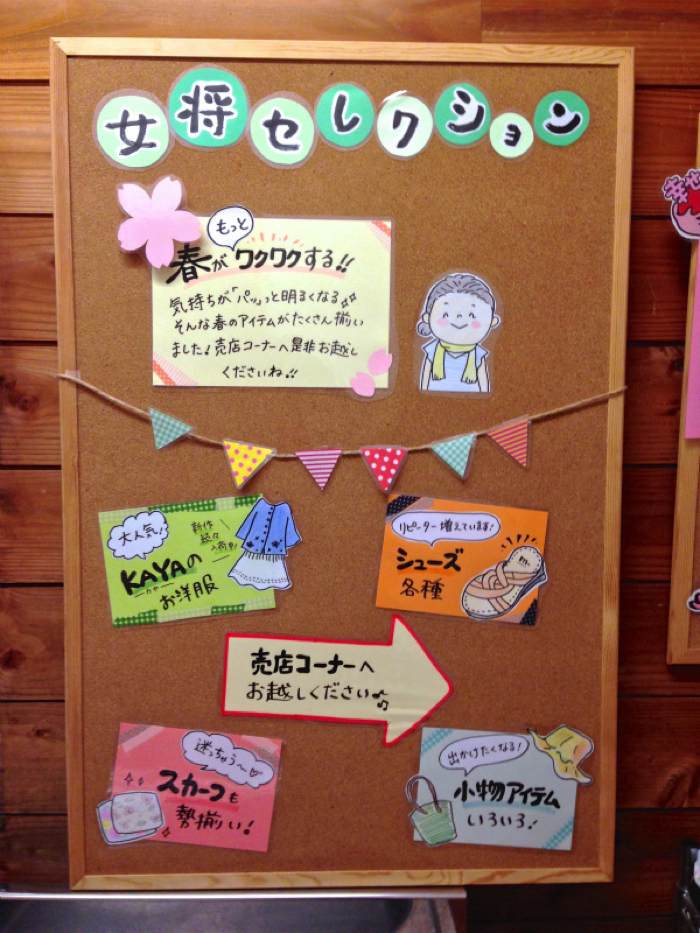 女将セレクション
もっと
春がワクワクする!!
気持ちが「パッ」っと明るくなる
そんな春のアイテムがたくさん揃い
ました!売店コーナーへ是非お越し
くださいね!!
大人気!
新作
続々
入荷中!
KAYAの
カヤ
お洋服
リピーター増えています!
シューズ
各種
売店コーナーへ
お越しください♫
迷っちゃう〜♡
スカーフも
勢揃い!
出かけたくなる!
小物アイテム
いろいろ!
幸せ